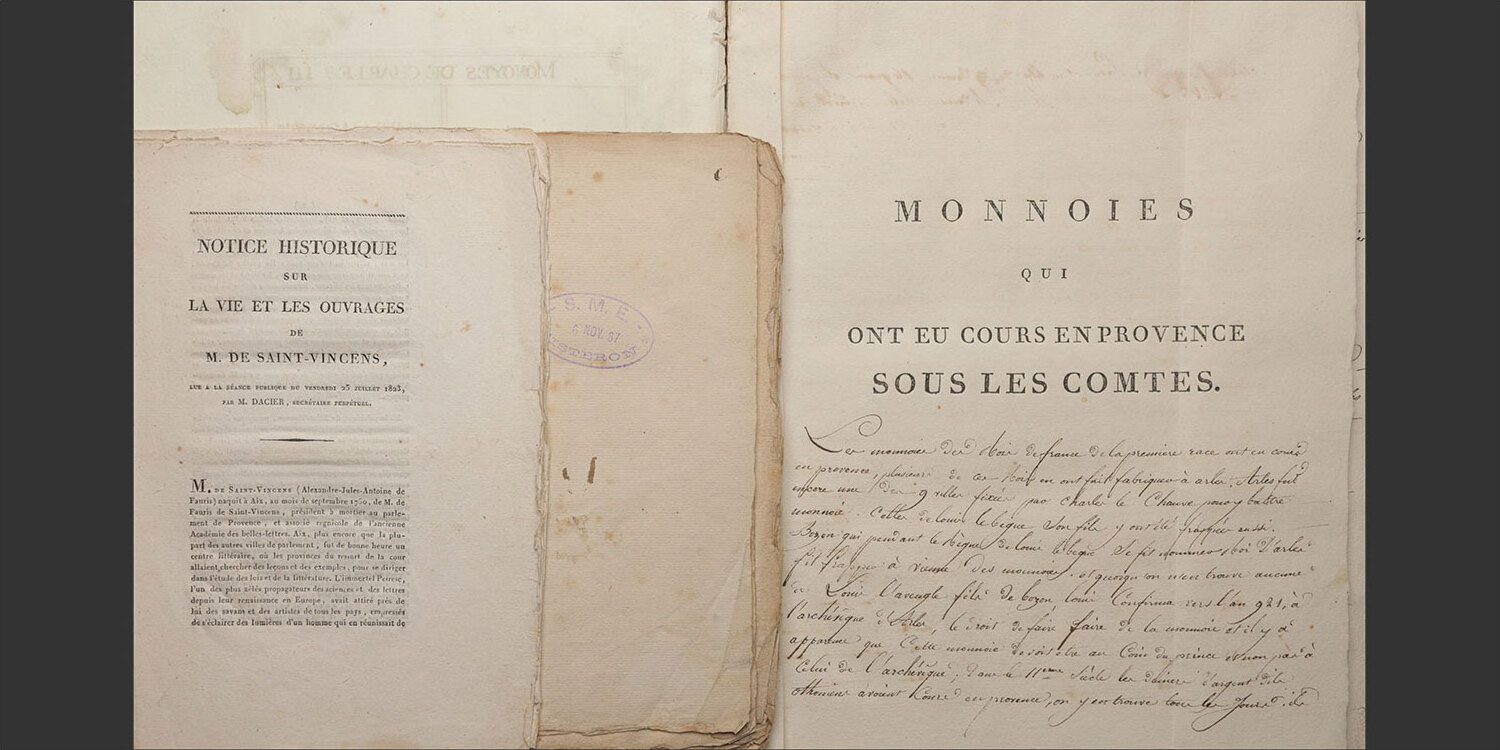 MONOYES DE CHARLES III
NOTICE HISTORIQUE
SUR
LA VIE ET LES OUVRAGES
DE
M. DE SAINT-VINCENS,
LUE A LA SÉANCE PUBLIQUE DU VENDREDI 25 JUILLET 1823,
PAR M. DACIER, SECRÉTAIRE PERPÉTUEL.
M. DE SAINT-VINCENS (Alexandre-Jules-Antoine de
Fauris) naquit à Aix, au mois de septembre 1750, de M. de
Fauris de Saint-Vincens, président à mortier au parle-
ment de Provence, et associé regnicole de l'ancienne
Académie des belles-lettres. Aix, plus encore que la plu-
part des autres villes de parlement, fut de bonne heure un
centre littéraire, où les provinces du ressort de la cour
allaient chercher des leçons et des exemples, pour se diriger
dans l'étude des lois et de la littérature. L'immortel Peiresc,
l'un des plus zélés propagateurs des sciences et des lettres
depuis leur renaissance en Europe, avait attiré près de
lui des savans et des artistes de tous les pays, empressés
de s'éclairer des lumières d'un homme qui en réunissait de
S. M. E.
6 NOV. 87
SISTERON
MONNOIES
QUI
ONT EU COURS EN PROVENCE
SOUS LES COMTES.
Les monnoies des Rois de france de la premiere race ont eu cours
en provence, plusieurs de ces Rois en ont fait fabriquer à arles. Arles fut
encore une des 9 villes fixées par Charles le Chauve pour y battre
monnoie. Celles de louis le begue son fils y ont été frapées aussi.
Bozon qui pendant le Règne de louis le begue se fit nommer Roi d'arles
fit fraper à vienne des monnoies. et quoiqu'on n'en trouve aucune
de Louis l'aveugle fils de bozon louis Confirma vers l'an 921, à
l'archévêque d'Arles, le droit de faire faire de la monnoie et il y a
apparence que Cette monnoie devoit etre au Coin du prince et non pas à
Celui de l'archévêque, Dans le 11eme Siècle les deniers d'argent dits
othoniens avoient Cours en provence, on y en trouve tous les Jours. ils